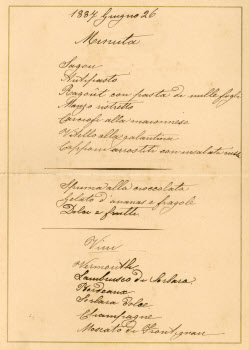 1887 Giugno 26
Minuta
Sagou
Antipasto
Ragoût con pasta di mille fogli
Manzo ristretto
Carciofi alla
Vitello alla galantina
Capponi arrostiti con insalata
Spuma alla cioccolata
Gelato d'ananas e fragole
Dolce e frutta
Vini
Vermouth
Lambrusco di Sorbara
Bordeaux
Sorbara dolce
Champagne
Moscato di Frontignan